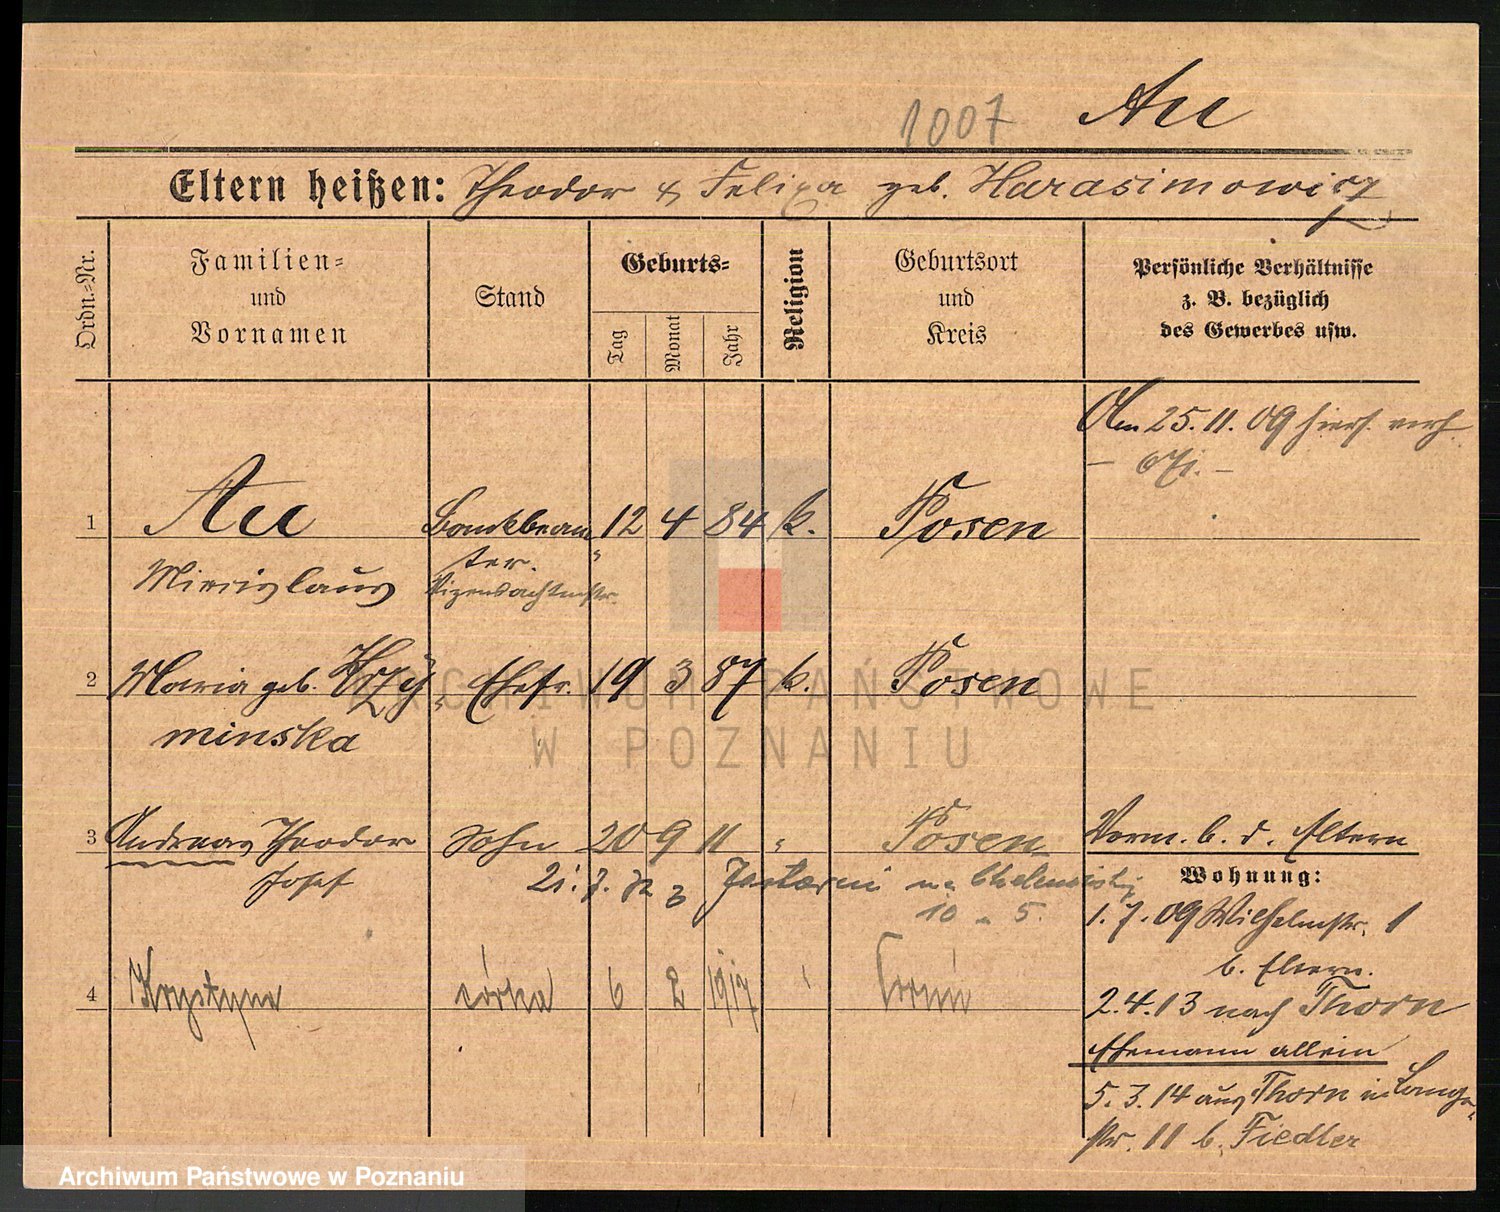 1007 Au
Eltern heißen: Theodor & Felixa geb. Harasimowicz
Ordn.-Nr.
Familien- und Vornamen
Stand
Geburts-
Tag
Monat
Jahr
Religion
Geburtsort und Kreis
Persönliche Verhältnisse
z. B. bezüglich
des Gewerbes usw.
Am 25. 11. 09 hiers. verh.
1 Au Bankbeam- 12 4 84 k. Posen
ter.
Miecislaus Vizewachtmstr.
2 Maria geb. Krzy- Ehefr. 19 3 87 k. Posen
minska
3 Andreas Theodor Sohn 20 9 11 " Posen
Josef
21. 7. z Jastarni na
10 5.
4 Krystyna córka 6 2 1917 Toruń
Verm. b. d. Eltern
Wohnung:
1. 7. 09 Wilhelmstr. 1
b. Eltern.
2. 4. 13 nach Thorn
Ehemann allein
5. 3. 14 aus Thorn in Lange-
str. 11 b. Fiedler
ARCHIWUM PAŃSTWOWE
W POZNANIU
Archiwum Państwowe w Poznaniu